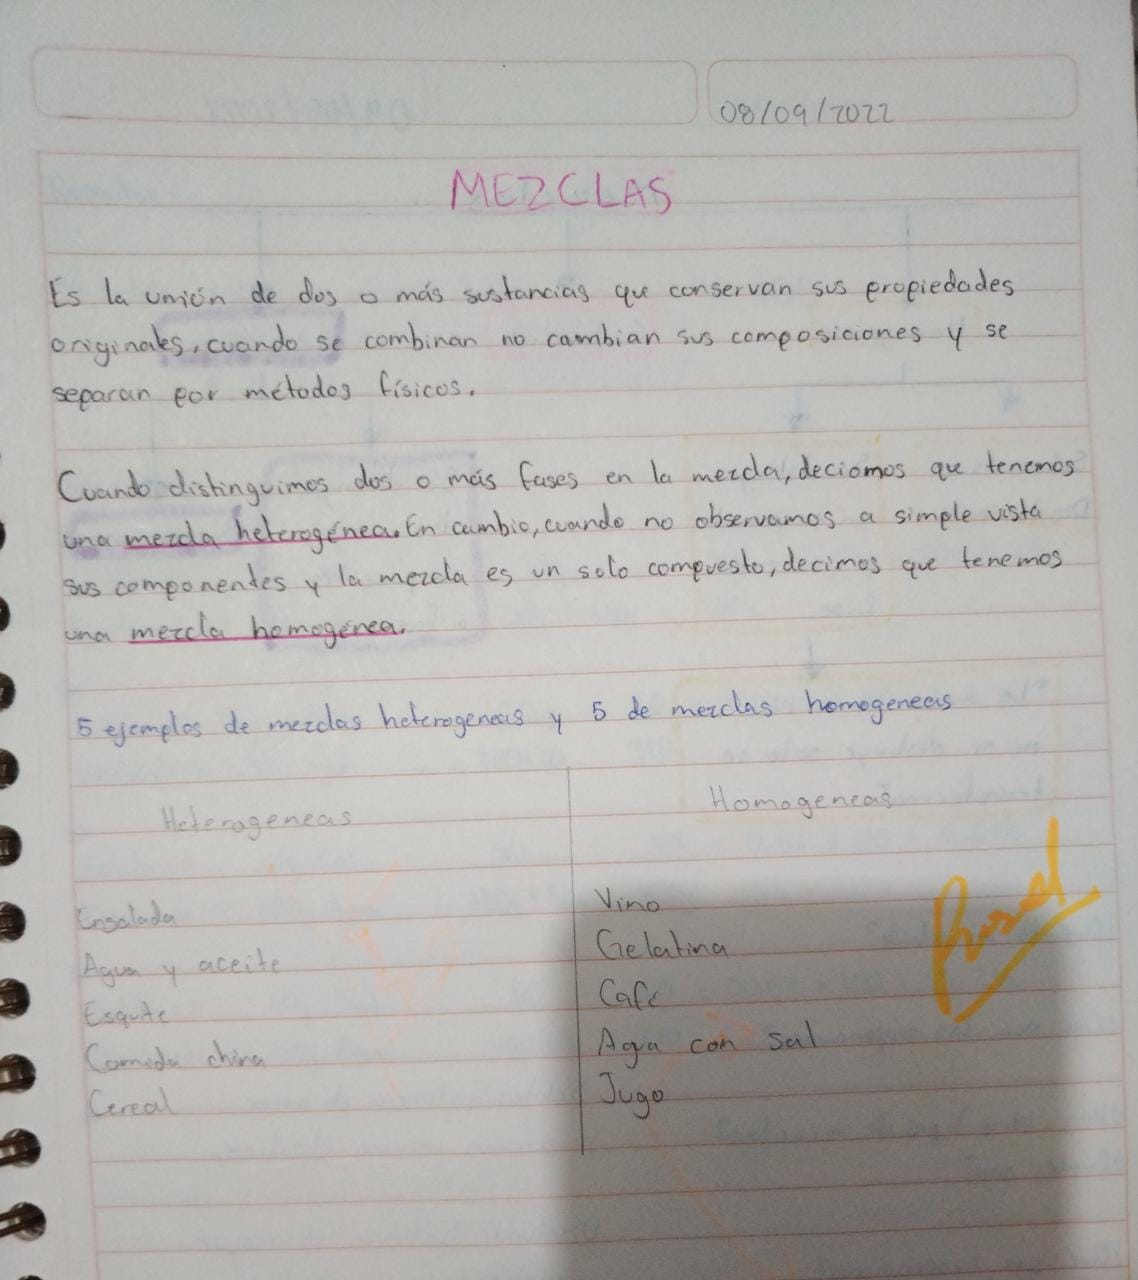 08/09/2022
MEZCLAS
Es la unión de dos o más sustancias que conservan sus propiedades
originales, cuando se combinan no cambian sus composiciones y se
separan por métodos físicos.
Cuando distinguimos dos o más fases en la mezcla, deciomos que tenemos
una mezcla heterogénea. En cambio, cuando no observamos a simple vista
sus componentes y la mezcla es un solo compuesto, decimos que tenemos
una mezcla homogénea.
5 ejemplos de mezclas heterogeneas y 5 de mezclas homogeneas
Heterogeneas
Homogeneas
Ensalada
Agua y aceite
Esquite
Comida china
Cereal
Vino
Gelatina
Café
Agua con sal
Jugo